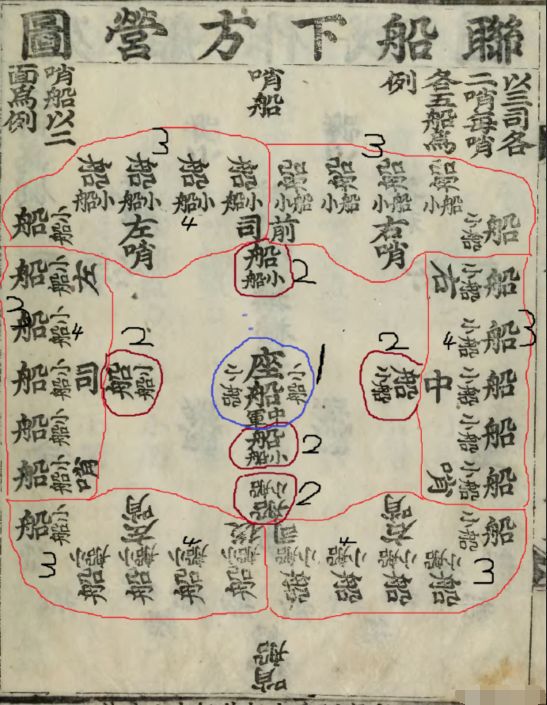 聯船下方營圖
以三司各
二哨每哨
各五船爲
例
哨船
哨船以二
面爲例
3
3
船小船
船小船
船小船
船小船
船小船
船小船
船小船
船小船
船小船
船小船
前司
右哨
左哨
4
船小船
2
右
中
哨
船小船
船小船
船小船
船小船
船小船
4
3
左
司
哨
船小船
船小船
船小船
船小船
船小船
4
3
船小船
2
船小船
2
座船
中軍
小船
小船
1
船小船
2
船小船
2
司
右哨
左哨
船小船
船小船
船小船
船小船
船小船
船小船
船小船
船小船
船小船
船小船
4
4
3
3
哨船